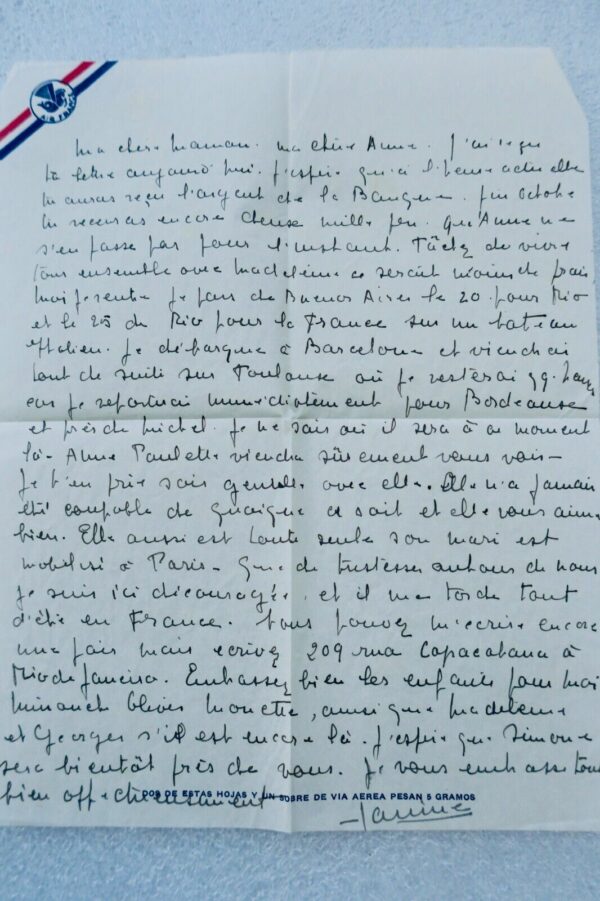 AIR FRANCE
Ma chère Maman. Ma chère Anne. J'ai reçu
ta lettre aujourd'hui. J'espère qu'à l'heure actuelle
tu auras reçu l'argent de la Banque. fin octobre
tu recevras encore deux mille frs. Qu'Anne ne
s'en fasse pas pour l'instant. Tâchez de vivre
tous ensemble avec Madeleine ce serait moins de frais
moi je rentre je pars de Buenos Aires le 20 pour Rio
et le 25 de Rio pour la France sur un bateau
italien. Je débarque à Barcelone et viendrai
tout de suite sur Toulouse où je resterai jours
car je repartirai immédiatement pour Bordeaux
et près de Michel. Je ne sais où il sera à ce moment
là. Anne Paulette viendra sûrement vous voir
Je t'en prie sois gentille avec elle. Elle n'a jamais
été coupable de quoique ce soit et elle vous aime
bien. Elle aussi est toute seule son mari est
mobilisé à Paris. Que de tristesse autour de nous
Je suis ici découragée et il me tarde tant
d'être en France. Vous pouvez m'écrire encore
une fois mais écrivez 209 rua Copacabana à
Rio de Janeiro. Embrassez bien les enfants pour moi
Monette, ainsi que Madeleine
et Georges s'il est encore là. J'espère que Simone
sera bientôt près de vous. Je vous embrasse tous
bien affectueusement
DOS DE ESTAS HOJAS Y UN SOBRE DE VIA AEREA PESAN 5 GRAMOS
Janine